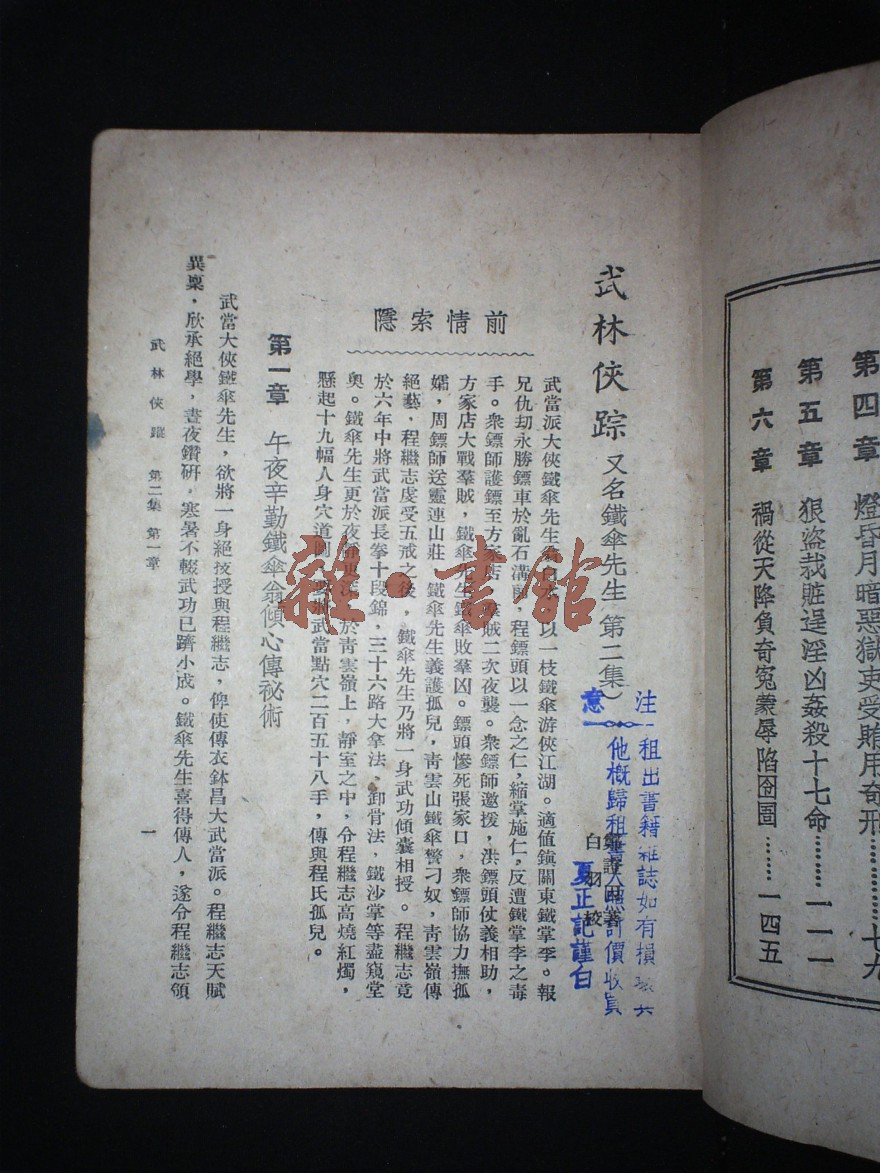 第四章 燈昏月暗惡獄吏受賄用奇刑………七九
第五章 狠盜栽贓逞淫凶姦殺十七命………一一一
第六章 禍從天降負奇冤蒙辱陷囹圄………一四五
武林俠踪 又名鐵傘先生（第二集）
鄭證因著
白羽校
注意
租出書籍雜誌如有損壞其
他概歸租書人照訂價收買
夏正記謹白
前情索隱
武當派大俠鐵傘先生 以一枝鐵傘游俠江湖。適值鎮關東鐵掌李。報
兄仇刧永勝鏢車於亂石溝 程鏢頭以一念之仁，縮掌施仁，反遭鐵掌李之毒
手。衆鏢師護鏢至方家店， 賊二次夜襲。衆鏢師邀援，洪鏢頭仗義相助，
方家店大戰羣賊，鐵傘先生鐵傘敗羣凶。鏢頭慘死張家口，衆鏢師協力撫孤
孀，周鏢師送靈連山莊，鐵傘先生義護孤兒，青雲山鐵傘警刁奴，青雲嶺傳
絕藝，程繼志虔受五戒之後，鐵傘先生乃將一身武功傾囊相授。程繼志竟
於六年中將武當派長拳十段錦，三十六路大拿法，卸骨法，鐵沙掌等盡窺堂
奧。鐵傘先生更於夜靜更深，於青雲嶺上，靜室之中，令程繼志高燒紅燭，
懸起十九幅人身穴道圖， 將武當點穴二百五十八手，傳與程氏孤兒。
第一章 午夜辛勤鐵傘翁傾心傳祕術
武當大俠鐵傘先生，欲將一身絕技授與程繼志，俾使傳衣鉢昌大武當派。程繼志天賦
異稟，欣承絕學，晝夜鑽研，寒暑不輟武功已躋小成。鐵傘先生喜得傳人，遂令程繼志領
武林俠蹤 第二集 第一章
一
雜·書館